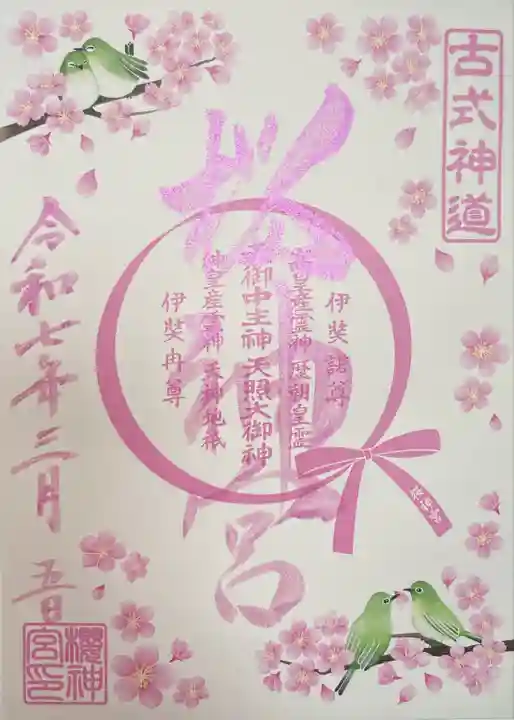 古式神道
桜神宮
伊奘諾尊
高皇産霊神 歴朝皇霊
天御中主神 天照大御神
神皇産霊神 天神地祇
伊奘冉尊
桜神宮
令和七年三月五日
櫻神
宮印